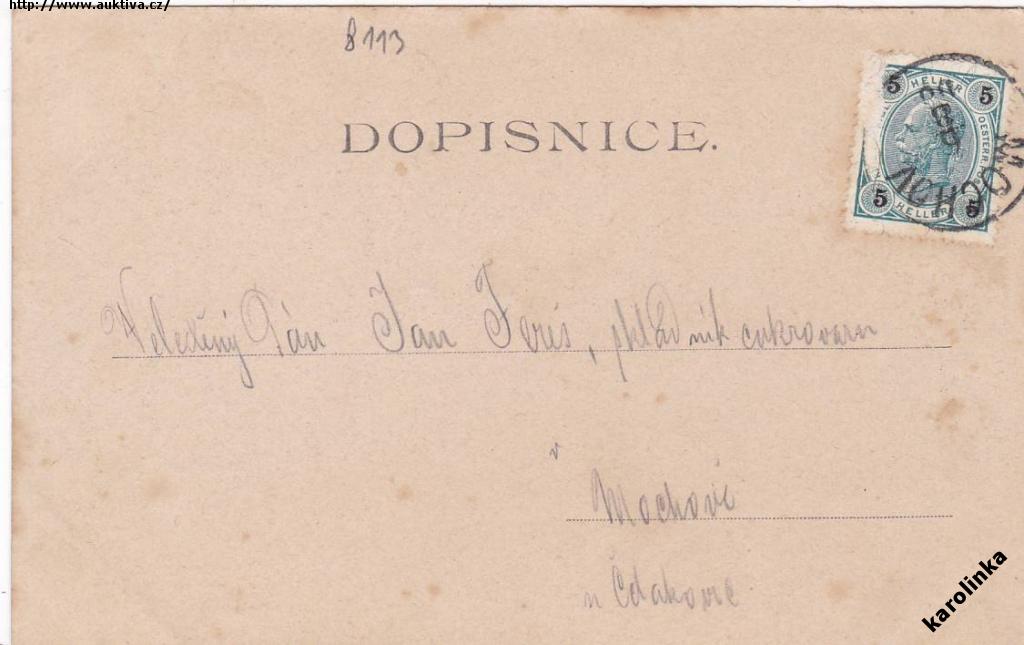 http://www.auktiva.cz/
8113
DOPISNICE.
5 HELLER 5
OESTERR.
5 HELLER 5
MOCHOV
Veleděný Pán Jan Fereš, skladník cukrovaru
v
Mochově
u Čelakovic
karolinka